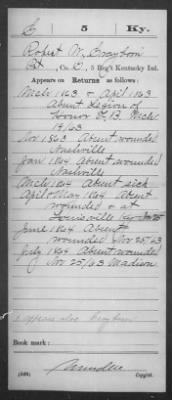 C 5 Ky.
Robert W.
Pvt, Co. D, 5 Reg't Kentucky Inf.
Appears on Returns as follows:
Mch 1863 & April 1863
Absent Legion of
honor G.O. Mch
19/63
Nov 1863 Absent wounded
Nashville
Jan 1864 Absent wounded
Nashville
Mch 1864 Absent sick
April & May 1864 Absent
wounded & at
Louisville Ky
June 1864 Absent
wounded Nov 25/63
July 1864 Absent wounded
Nov 25/63 Madison
appears also
Book mark:
Copyist.